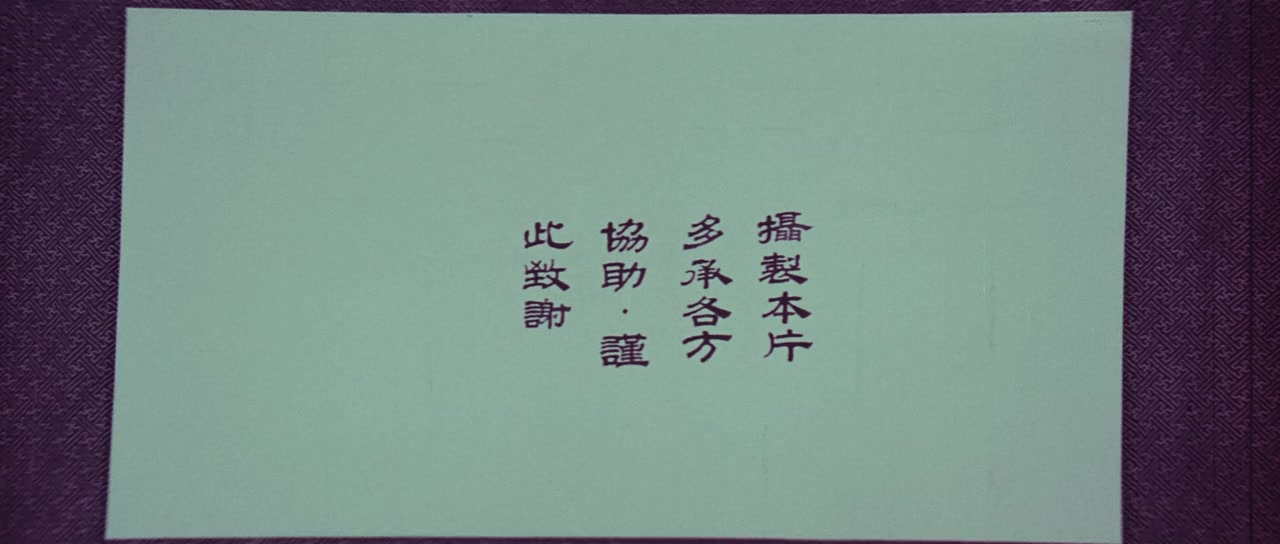 攝製本片
多承各方
協助·謹
此致謝